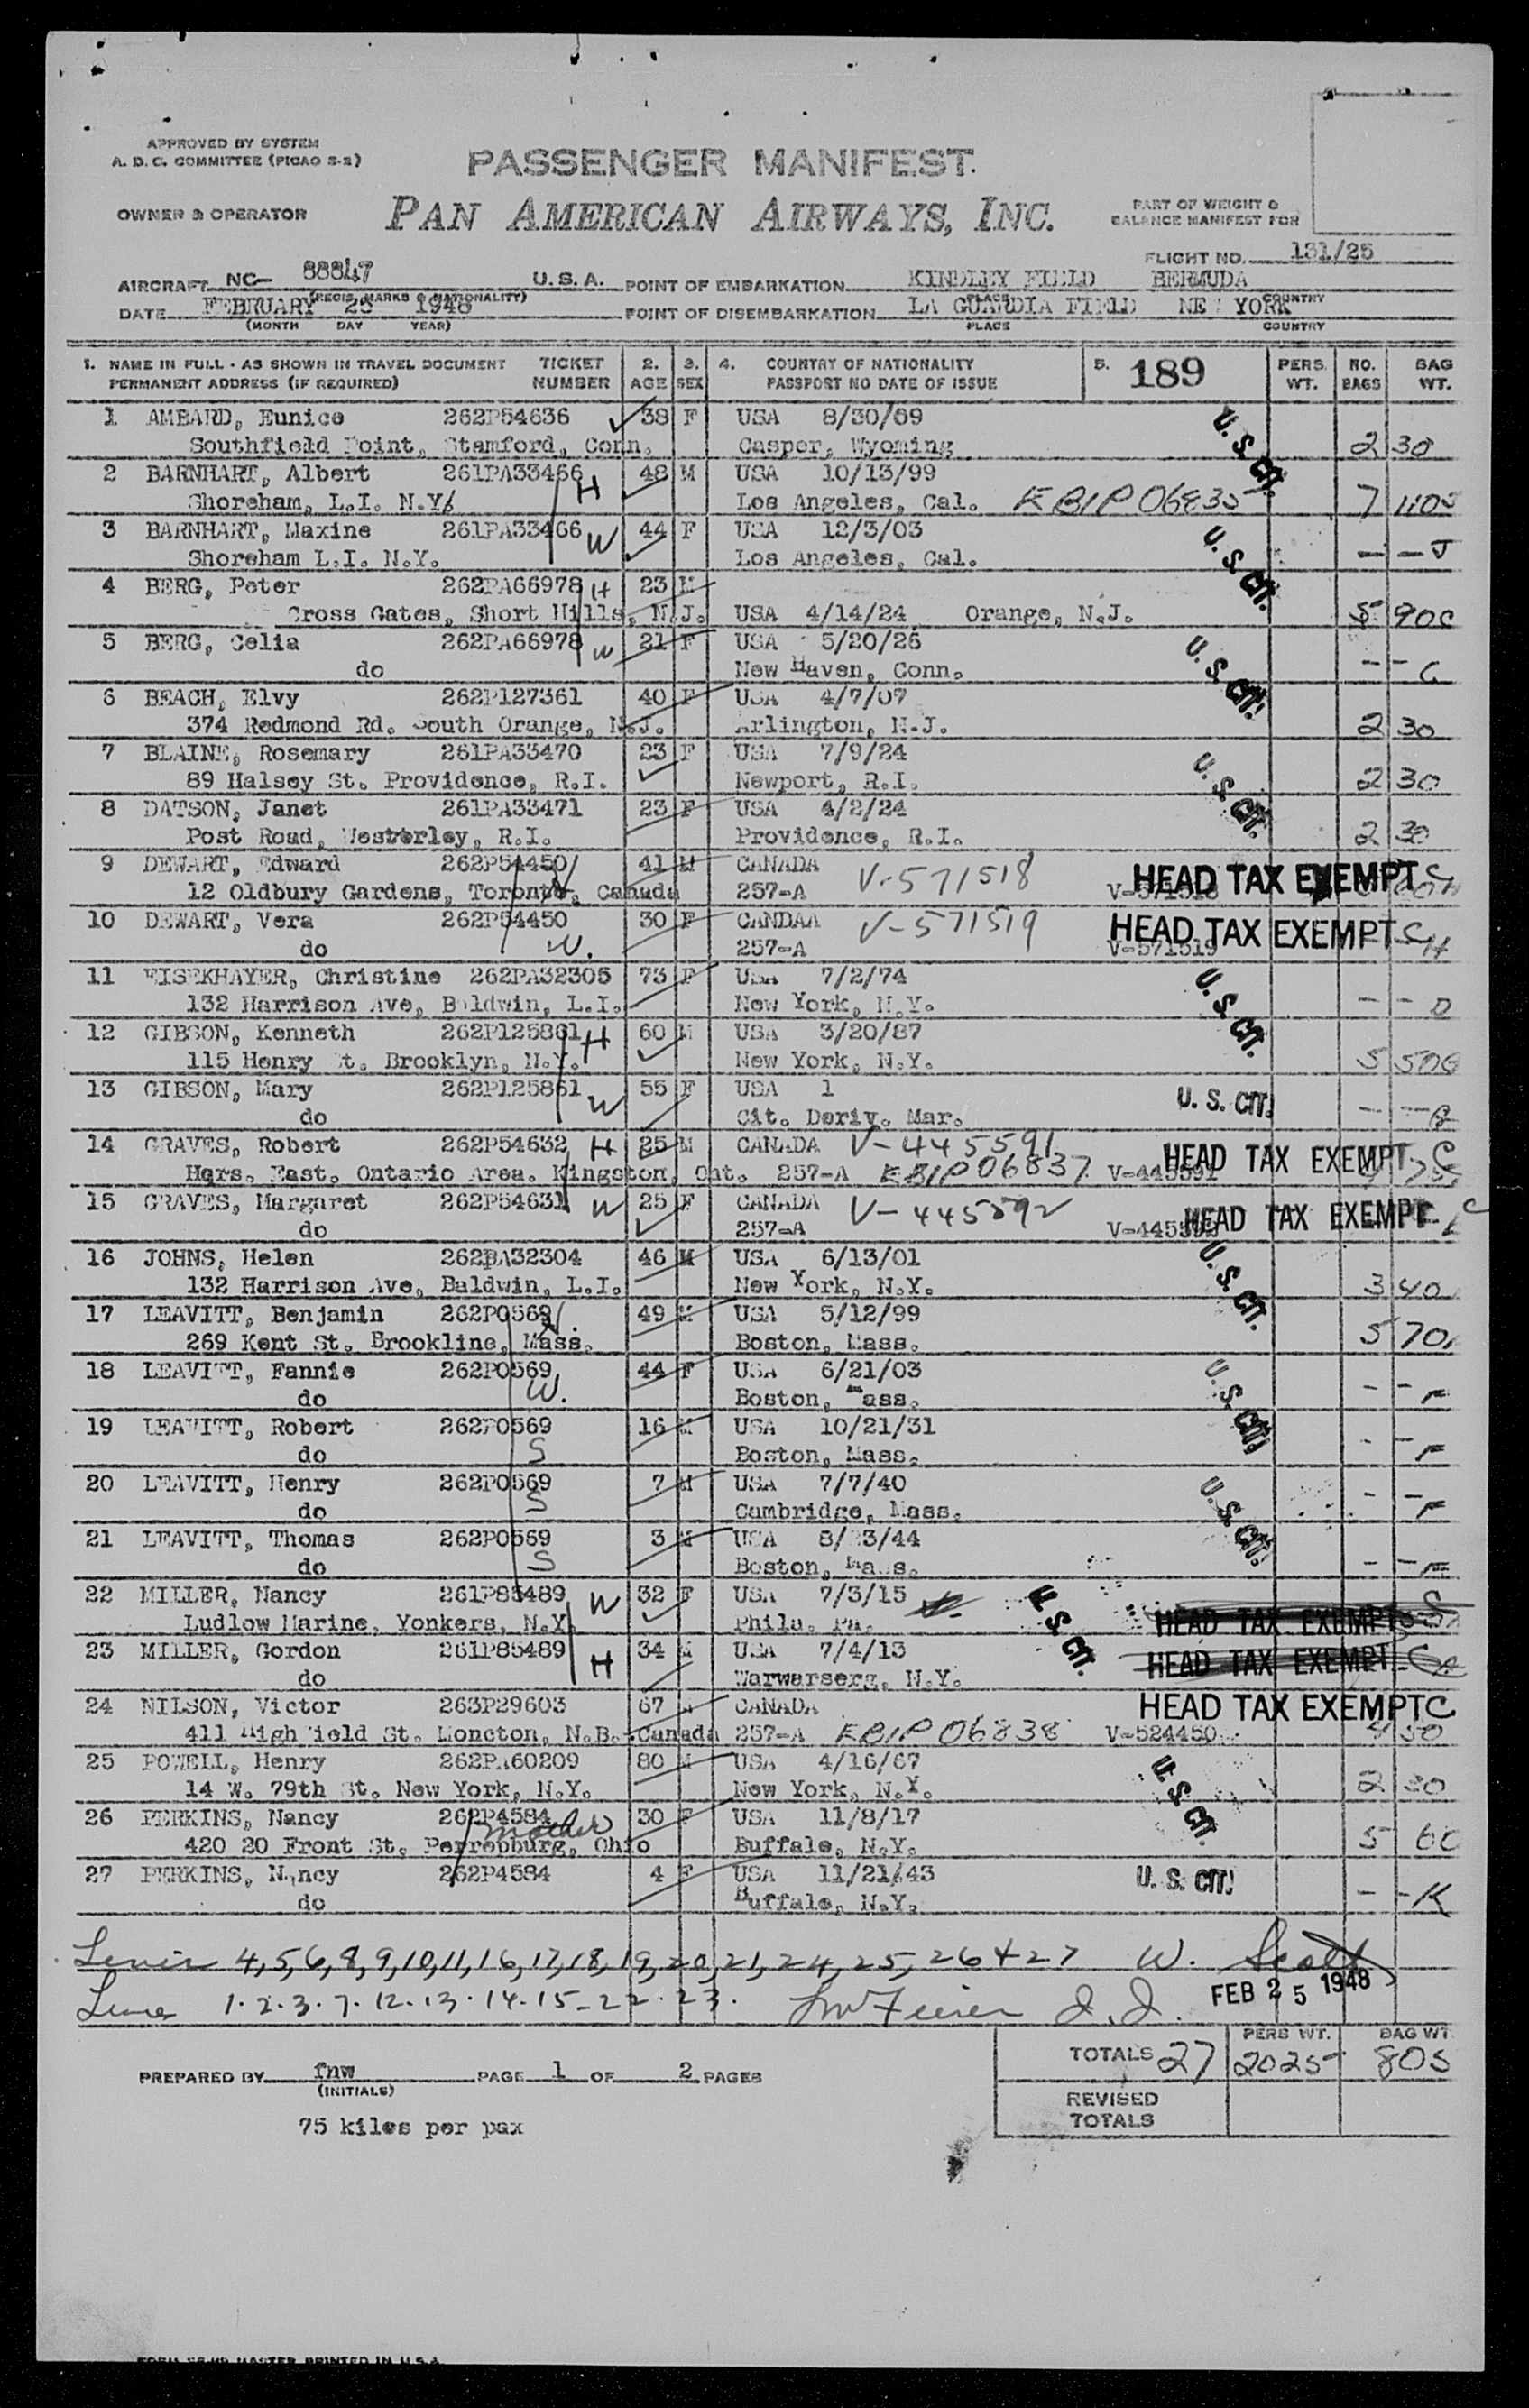 APPROVED BY SYSTEM
A. D. C. COMMITTEE (PICAO S-2)
PASSENGER MANIFEST.
OWNER & OPERATOR PAN AMERICAN AIRWAYS, INC.
PART OF WEIGHT &
BALANCE MANIFEST FOR
FLIGHT NO. 131/25
AIRCRAFT NC- 88847 U. S. A. POINT OF EMBARKATION KINDLEY FIELD BERMUDA
(REGIS. MARKS & NATIONALITY) PLACE COUNTRY
DATE FEBRUARY 25 1948 POINT OF DISEMBARKATION LA GUARDIA FIELD NEW YORK
(MONTH DAY YEAR) PLACE COUNTRY
1. NAME IN FULL - AS SHOWN IN TRAVEL DOCUMENT TICKET 2. 3. 4. COUNTRY OF NATIONALITY 5. 189 PERS. NO. BAG
PERMANENT ADDRESS (IF REQUIRED) NUMBER AGE SEX PASSPORT NO DATE OF ISSUE WT. BAGS WT.
1 AMBARD, Eunice 262P54636 38 F USA 8/30/09 U. S. CIT.
Southfield Point, Stamford, Conn. Casper, Wyoming 2 30
2 BARNHART, Albert 261PA33466 H 48 M USA 10/13/99
Shoreham, L.I. N.Y. Los Angeles, Cal. 7 110
3 BARNHART, Maxine 261PA33466 W 44 F USA 12/3/03 U. S. CIT.
Shoreham L.I. N.Y. Los Angeles, Cal. - - J
4 BERG, Peter 262PA66978 H 23 M
Cross Gates, Short Hills, N.J. USA 4/14/24 Orange, N.J. 5 90C
5 BERG, Celia 262PA66978 W 21 F USA 5/20/26 U. S. CIT.
do New Haven, Conn. - - C
6 BEACH, Elvy 262P127361 40 F USA 4/7/07
374 Redmond Rd. South Orange, N.J. Arlington, N.J. 2 30
7 BLAINE, Rosemary 261PA33470 23 F USA 7/9/24 U. S. CIT.
89 Halsey St. Providence, R.I. Newport, R.I. 2 30
8 DATSON, Janet 261PA33471 23 F USA 4/2/24
Post Road, Westerley, R.I. Providence, R.I. 2 30
9 DEWART, Edward 262P54450 41 M CANADA V-571518 HEAD TAX EXEMPT C
12 Oldbury Gardens, Toronto, Canada 257-A V-571518
10 DEWART, Vera 262P54450 30 F CANDAA V-571519 HEAD TAX EXEMPT C
do W. 257-A V-571519 H
11 EISEKHAYER, Christine 262PA32305 73 F USA 7/2/74 U. S. CIT.
132 Harrison Ave, Baldwin, L.I. New York, N.Y. - - D
12 GIBSON, Kenneth 262P125861 H 60 M USA 3/20/87
115 Henry St. Brooklyn, N.Y. New York, N.Y. 5 50
13 GIBSON, Mary 262P125861 W 55 F USA 1 U. S. CIT.
do Cit. Deriv. Mar. - -
14 GRAVES, Robert 262P54632 H 25 M CANADA V-445591 HEAD TAX EXEMPT C
Hqrs. East. Ontario Area. Kingston, Ont. 257-A EBIP06837 V-445591
15 GRAVES, Margaret 262P54631 W 25 F CANADA V-445592 HEAD TAX EXEMPT C
do 257-A V-445592
16 JOHNS, Helen 262PA32304 46 M USA 6/13/01 U. S. CIT.
132 Harrison Ave, Baldwin, L.I. New York, N.Y. 3 40
17 LEAVITT, Benjamin 262P0569 H. 49 M USA 5/12/99
269 Kent St. Brookline, Mass. Boston, Mass. 5 70
18 LEAVITT, Fannie 262P0569 44 F USA 6/21/03 U. S. CIT.
do W. Boston, Mass. - - F
19 LEAVITT, Robert 262P0569 16 M USA 10/21/31
do S Boston, Mass. - - F
20 LEAVITT, Henry 262P0569 7 M USA 7/7/40 U. S. CIT.
do S Cambridge, Mass. - - F
21 LEAVITT, Thomas 262P0569 3 M USA 8/23/44
do S Boston, Mass. - - F
22 MILLER, Nancy 261P85489 W 32 F USA 7/3/15 U. S. CIT.
Ludlow Marine, Yonkers, N.Y. Phila. Pa. HEAD TAX EXEMPT
23 MILLER, Gordon 261P85489 H 34 M USA 7/4/13
do Warwarserg, N.Y. HEAD TAX EXEMPT
24 NILSON, Victor 263P29603 67 M CANADA HEAD TAX EXEMPT C
411 Highfield St. Moncton, N.B. Canada 257-A EBIP06838 V-524450 4 50
25 POWELL, Henry 262PA60209 80 M USA 4/16/67 U. S. CIT
14 W. 79th St. New York, N.Y. New York, N.Y. 2 30
26 PERKINS, Nancy 262P4584 mother 30 F USA 11/8/17
420 20 Front St. Perrobburg, Ohio Buffalo, N.Y. 5 60
27 PERKINS, Nancy 262P4584 4 F USA 11/21/43 U. S. CIT.
do Buffalo, N.Y. - - K
4,5,6,8,9,10,11,16,17,18,19,20,21,24,25,26+27 W. Scott
1.2.3.7.12.13.14.15-22.23. FEB 25 1948
PERS WT. BAG WT
TOTALS 27 2025 805
PREPARED BY fnw PAGE 1 OF 2 PAGES
(INITIALS)
REVISED
TOTALS
75 kilos per pax